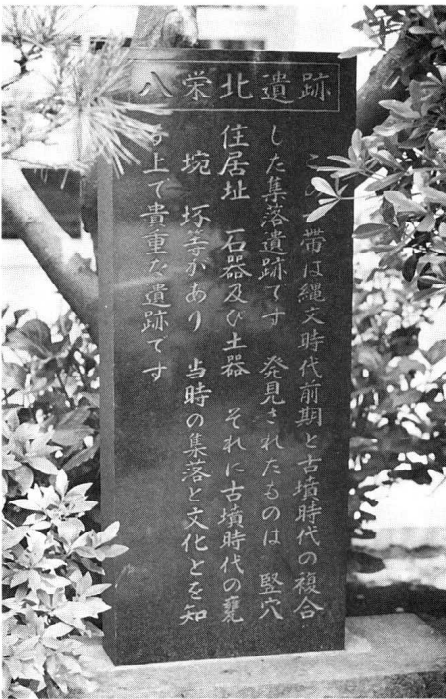 八栄北遺跡
この一帯は縄文時代前期と古墳時代の複合
した集落遺跡です 発見されたものは 竪穴
住居址 石器及び土器 それに古墳時代の甕
埦 坏等があり 当時の集落と文化とを知
る上で貴重な遺跡です